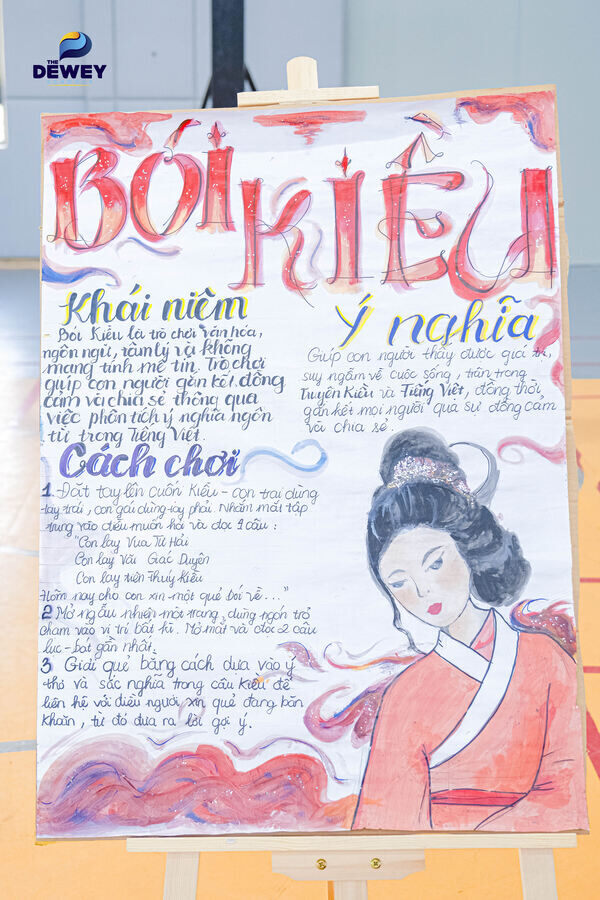 THE
DEWEY
BÓI
KIỀU
Khái niệm
- Bói Kiều là trò chơi văn hóa,
ngôn ngữ, tâm lý và không
mang tính mê tín. Trò chơi
giúp con người gắn kết, đồng
cảm và chia sẻ thông qua
việc phân tích ý nghĩa ngôn
từ trong Tiếng Việt.
Ý nghĩa
Giúp con người thấy được giá trị,
suy ngẫm về cuộc sống, trân trọng
Truyện Kiều và Tiếng Việt, đồng thời
gắn kết mọi người qua sự đồng cảm
và chia sẻ.
Cách chơi
1. Đặt tay lên cuốn Kiều - con trai dùng
tay trái, con gái dùng tay phải. Nhắm mắt tập
trung vào điều muốn hỏi và đọc 1 câu:
"Con lạy Vua Từ Hải
Con lạy Vãi Giác Duyên
Con lạy tiên Thúy Kiều
Hôm nay cho con xin một quẻ bói về..."
2 Mở ngẫu nhiên một trang, dùng ngón trỏ
chạm vào vị trí bất kì. Mở mắt và đọc 2 câu
lục - bát gần nhất.
3 Giải quẻ bằng cách dựa vào ý
thơ và sắc nghĩa trong câu Kiều để
liên hệ với điều người xin quẻ đang băn
khoăn, từ đó đưa ra lời gợi ý.